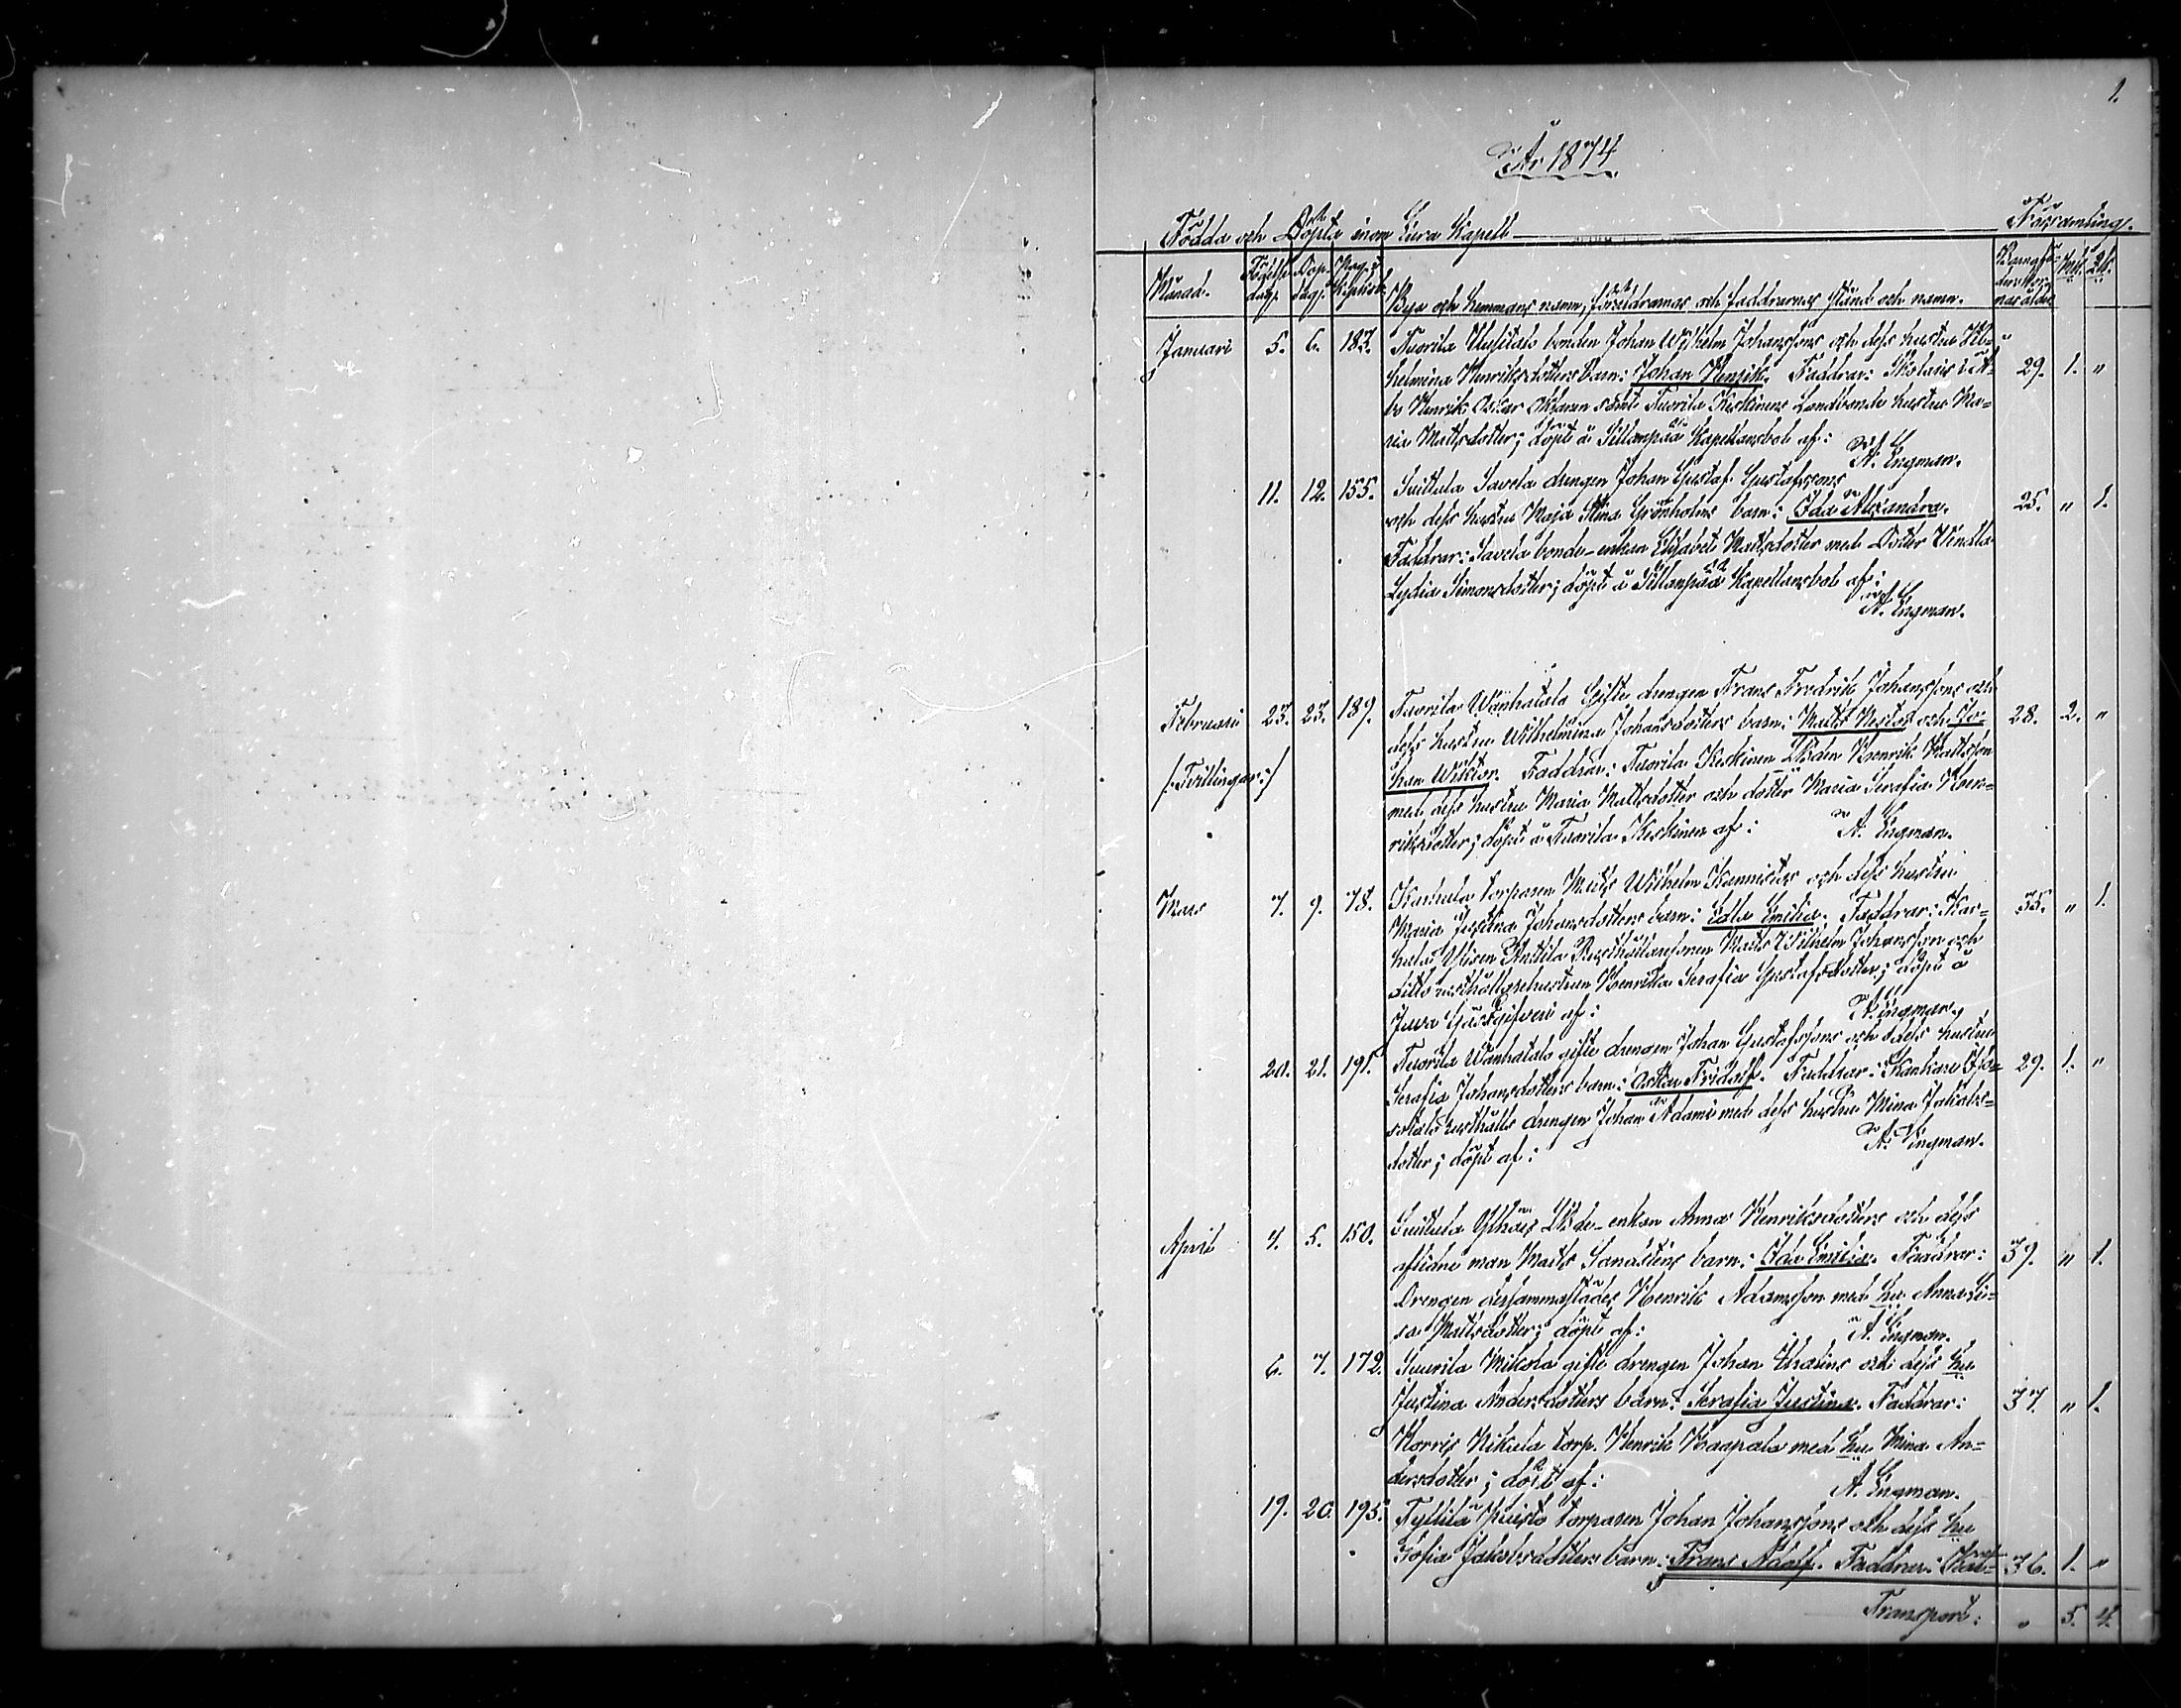 1.
År 1874
Födda och Döpta inom Eura Kapell Församling.
Månad. Födelse dag. Dop. dag. Pag. i Kyrkob. Bys och hemmans namn, föräldrarnas och faddrarnes stånd och namn. Barnaföderskornas ålder Mk. Qk.
Januari 5. 6. 183. Tuorila Uusitalo bonden Johan Wilhelm Johanssons och dess hustru Wil-
helmina Henriksdotters barn: Johan Henrik. Faddrar: Skolaris i Å- 29. 1. "
bo Henrik Oskar samt Tuorila Keskinens Landbonde hustru Ma-
ria Mattsdotter; döpt å Sillanpää Kapellansbol af:
A. Engman.
11. 12. 155. Suttila Savela drengen Johan Gustaf Gustafssons
och dess hustru Maja Stina Grönholms barn: Ida Alexandra. 25. " 1.
Faddrar: Savela bonde-enkan Elisabet Mattsdotter med Dotter
Lydia Simonsdotter; döpt å Sillanpää Kapellansbol af:
A. Engman.
Februari 23. 23. 189. Tuorila Wanhatalo Gifte drengen Frans Fredrik Johanssons och
dess hustru Wilhelmina Johansdotters barn: Matts Nestor och Jo- 28. 2. "
/:Tvillingar:/ han Wiktor. Faddrar: Tuorila Keskinen Henrik Mattsson
med dess hustru Maria Mattsdotter och dotter Maria Serafia Hen-
riksdotter; döpt å Tuorila Keskinen af: A. Engman.
Mars 7. 9. 78. Kauhala torparen Matts Wilhelm Kannistos och dess hustru
Maria Justina Johansdotters barn: Edla Emilia. Faddrar: Kau- 35. " 1.
hala Ylisen Anttila Rusthållaresonen Matts Wilhelm Johansson och
ditto rusthållarehustrun Henrika Serafia Gustafsdotter; döpt å
Gästgifveri af: A. Engman.
20. 21. 191. Tuorila Wanhatalo gifte drengen Johan Gustafssons och dess hustru
Serafia Johansdotters barn: Oskar Fridolf. Faddrar: 29. 1. "
rusthålls drengen Johan Adami med dess hustru Mina Jakobs-
dotter; döpt af: A. Engman.
April 4. 5. 150. Suttila enkan Anna Henriksdotters och dess
aflidne man Matts barn: Ida Emilia. Faddrar: 39. " 1.
Drengen dersammastädes Henrik Adamsson med hu Anna Li-
sa Mattsdotter; döpt af: A. Engman.
6. 7. 172. Suurila Mikola gifte drengen Johan Thalins och dess hu
Justina Andersdotters barn: Serafia Justina. Faddrar: 37. " 1.
Norris Nikula torp. Henrik Haapala med hu Mina An-
dersdotter; döpt af: A. Engman.
19. 20. 195. torparen Johan Johanssons och dess hu
Sofia Jakobsdotters barn: Frans Adolf. Faddrar: 36. 1. "
Transport: " 5. 4.